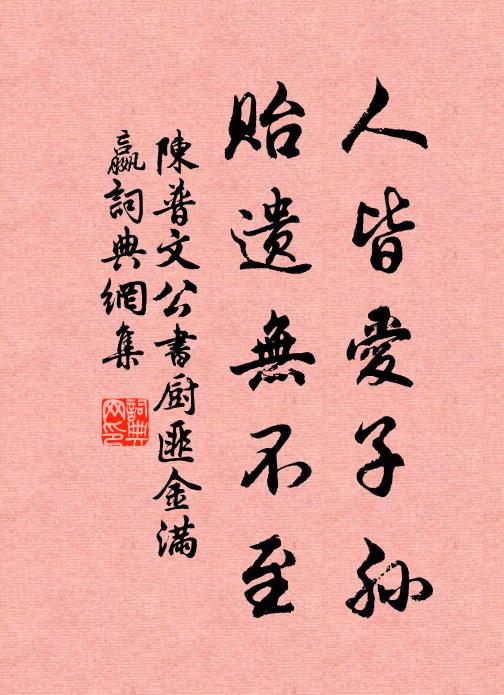 人皆愛子孫
貽遺無不至
陳普文公書厨匪金滿
贏詞典網集
詞典
网印